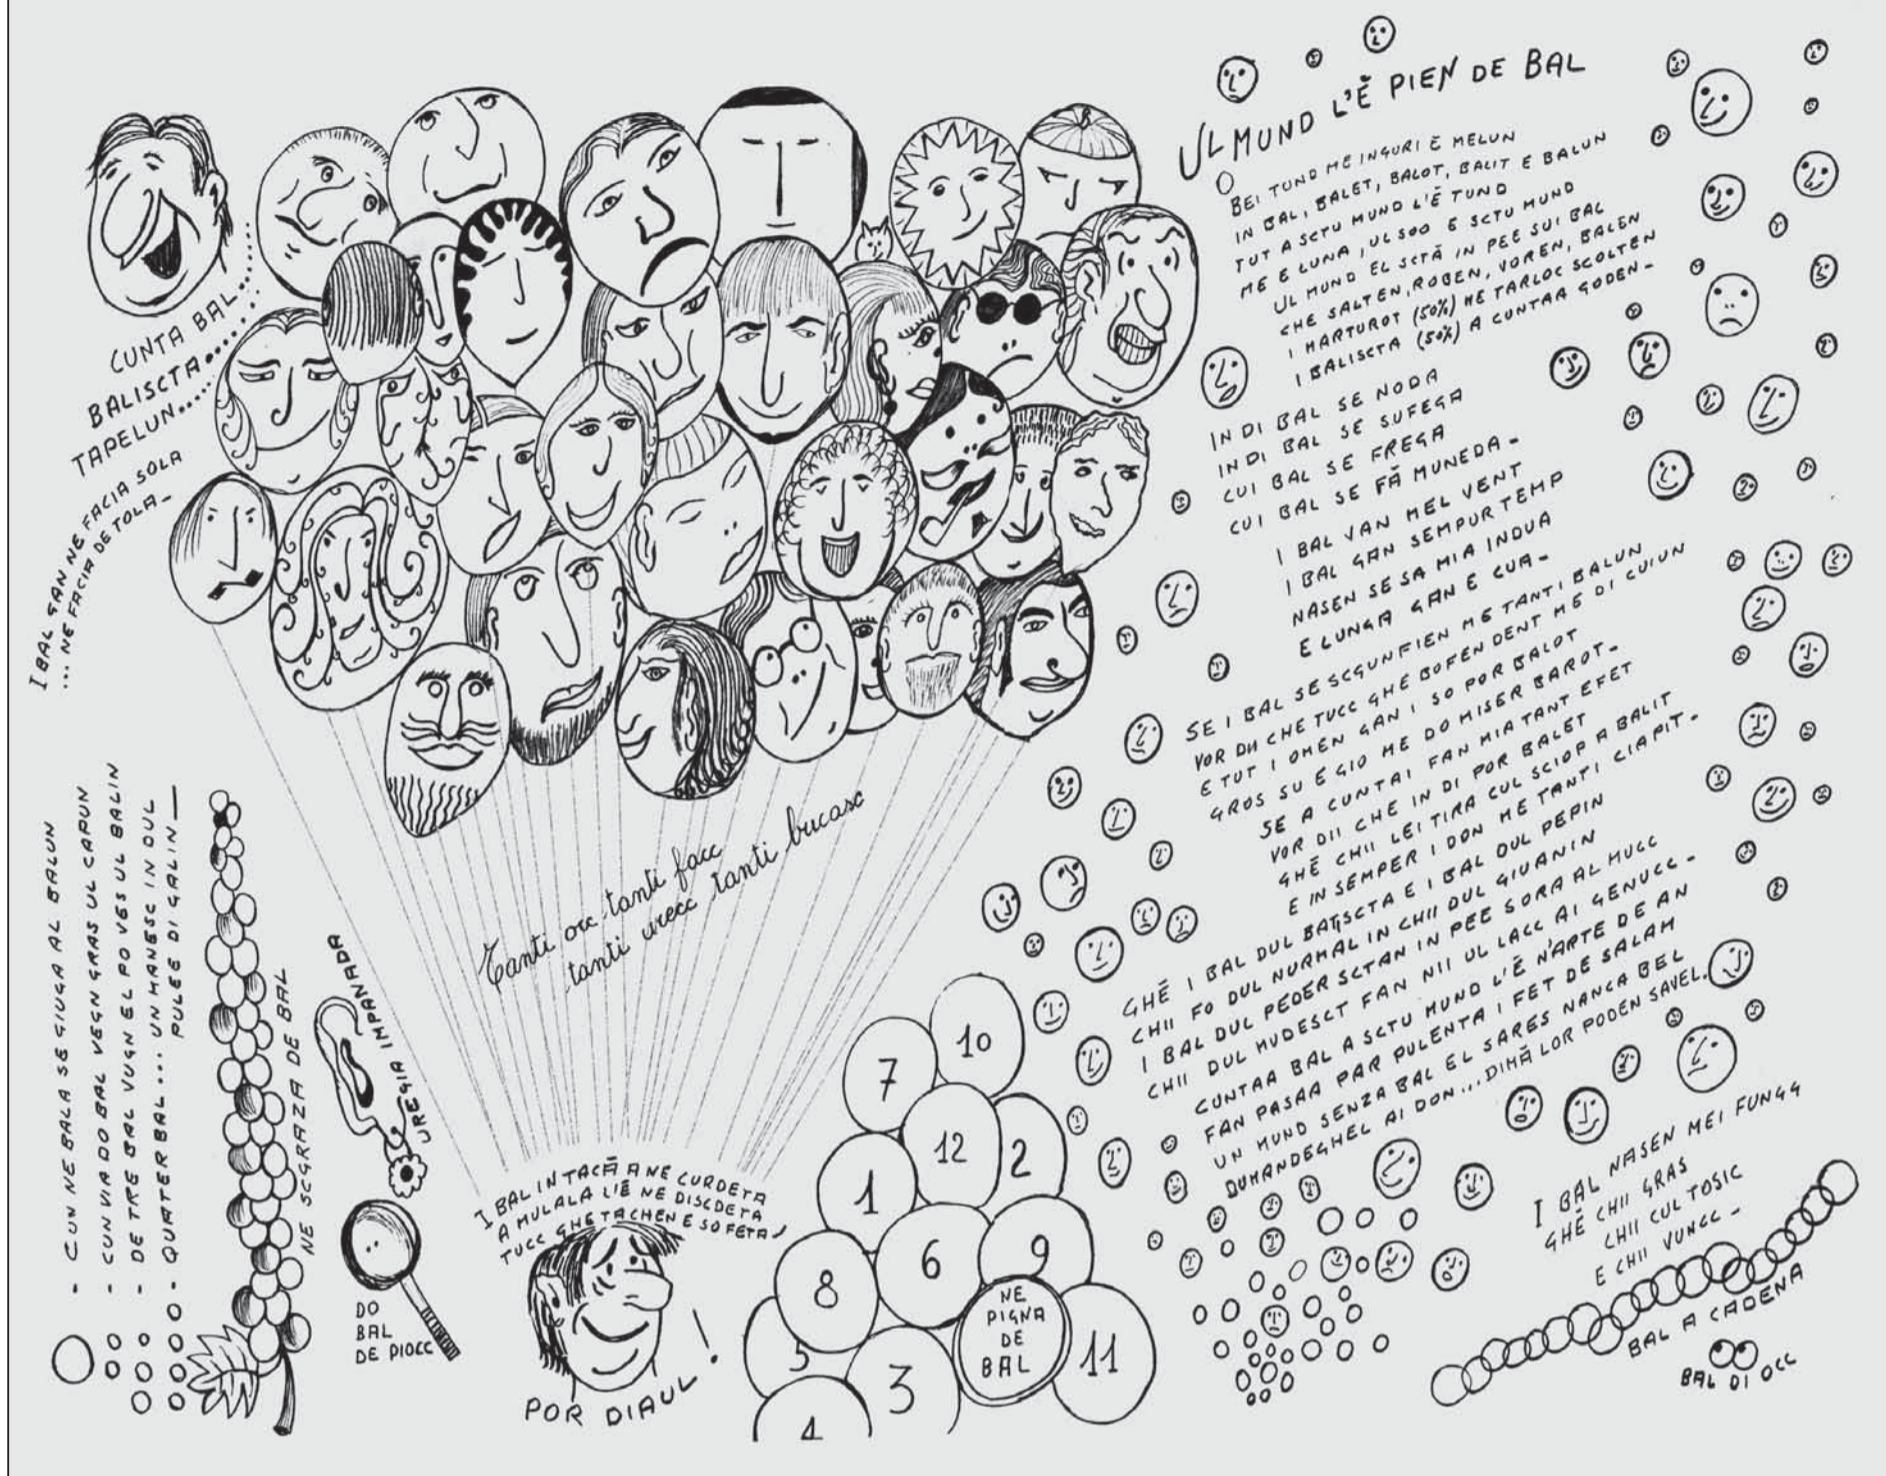 UL MUND L'È PIEN DE BAL
O BEI TUND ME INGURI E MELUN
IN BAL, BALET, BALOT, BALIT E BALUN
TUT A SCTU MUND L'È TUND
ME E LUNA, UL SOO E SCTU MUND
UL MUND EL SCTÀ IN PEE SUI BAL
CHE SALTEN, ROBEN, VOREN, BALEN
I MARTUROT (50%) ME TARLOC SCOLTEN
I BALISCTA (50%) A CUNTAA GODEN-
IN DI BAL SE NODA
IN DI BAL SE SUFEGA
CUI BAL SE FREGA
CUI BAL SE FÀ MUNEDA-
I BAL VAN MEL VENT
I BAL GAN SEMPUR TEMP
NASEN SE SA MIA INDUA
E LUNGA GAN E CUA-
SE I BAL SE SCGUNFIEN ME TANTI BALUN
VOR DII CHE TUCC GHE BOFEN DENT ME DI CUIUN
E TUT I OMEN GAN I SO POR BALOT
GROS SU E GIO ME DO MISER BAROT-
SE A CUNTAI FAN MIA TANT EFET
VOR DII CHE IN DI POR BALET
GHÈ CHII LEI TIRA CUL SCIOP A BALIT
E IN SEMPER I DON ME TANTI CIAPIT-
GHÈ I BAL DUL BATSCTA E I BAL DUL PEPIN
CHII FO DUL NURMAL IN CHII DUL GIUANIN
I BAL DUL PEDER SCTAN IN PEE SORA AL MUCC
CHII DUL MUDESCT FAN NII UL LACC AI GENUCC-
CUNTAA BAL A SCTU MUND L'È N'ARTE DE AN
FAN PASAA PAR PULENTA I FET DE SALAM
UN MUND SENZA BAL EL SARES NANCA BEL
DUMANDEGHEL AI DON... DIMÀ LOR PODEN SAVEL.
I BAL NASEN MEI FUNGG
GHÈ CHII GRAS
CHII CUL TOSIC
E CHII VUNCC-
BAL A CADENA
BAL DI OCC
CUNTA BAL...
BALISCTA...
TAPELUN...
I BAL GAN NE FACIA SOLA
... NE FACIA DE TOLA-
Tanti occ tanti facc
tanti urecc tanti bucasc
- CUN NE BALA SE GIUGA AL BALUN
- CUN VIA DO BAL VEGN GRAS UL CAPUN
- DE TRE BAL VUGN EL PO VES UL BALIN
- QUATER BAL... UN MANESC IN DUL
PULEE DI GALIN-
NE SCGRAZA DE BAL
UREGIA IMPANADA
DO
BAL
DE PIOCC
I BAL IN TACÀ A NE CURDETA
A MULALA L'È NE DISCDETA
TUCC GHE TACHEN E SO FETA
POR DIAUL!
10
7
12
2
1
6
9
8
5
3
4
11
NE
PIGNA
DE
BAL